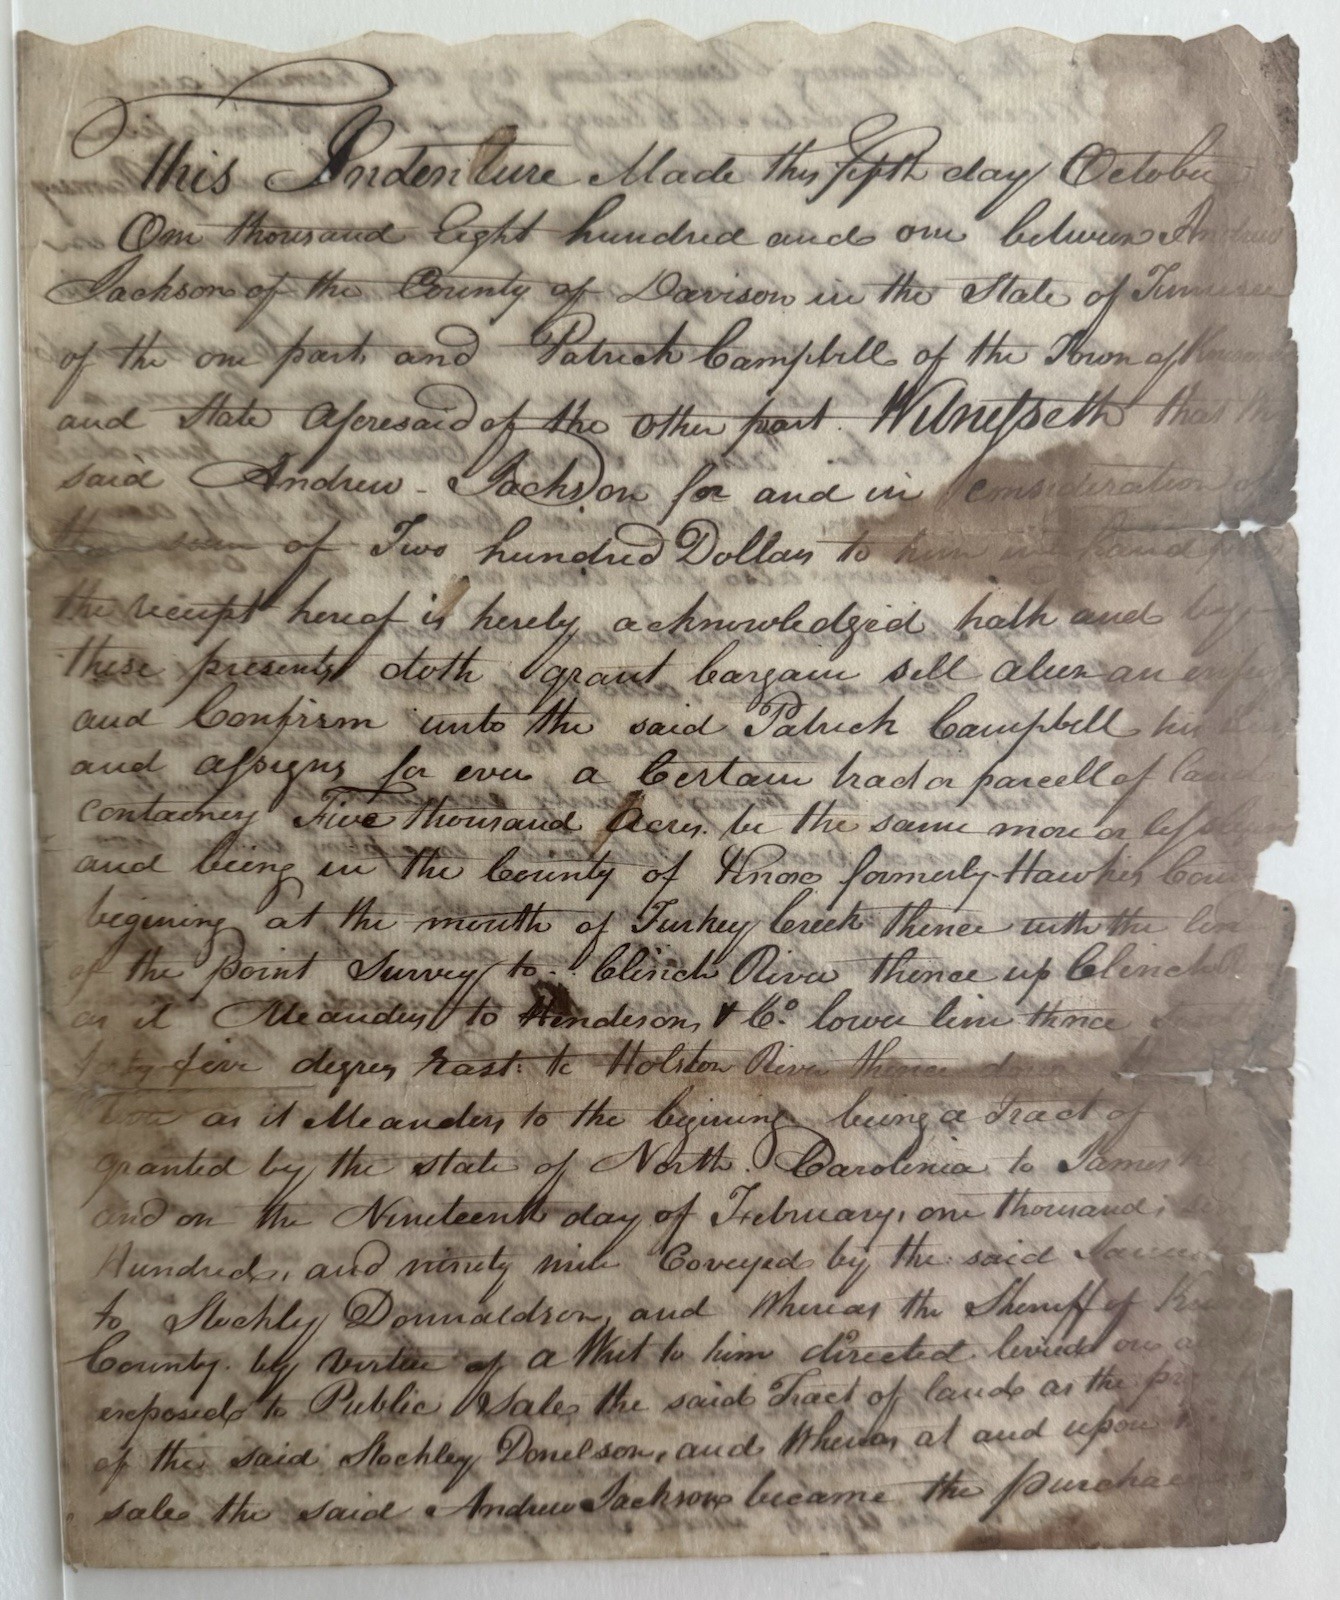 This Indenture Made this fifth day October
One thousand Eight hundred and one between Andrew
Jackson of the County of Davison in the State of Tennessee
of the one part and Patrick Campbell of the Town of
and State aforesaid of the other part. Witnesseth that the
said Andrew Jackson for and in consideration of
the sum of Two hundred Dollars to him in hand
the receipt hereof is hereby acknowledged hath and by
these presents doth grant bargain sell alien an
and Confirm unto the said Patrick Campbell his
and assigns for ever a Certain tract or parcell of land
containing Five thousand Acres be the same more or less
and being in the County of Knox formerly Hawkins
begining at the mouth of Turkey Creek thence with the line
of the point Survey to Clinch River thence up Clinch
as it Meanders to Hendersons & Co. lower line thence
forty five degrees East to Holston River thence down
as it Meanders to the begining being a Tract of
granted by the state of North Carolinia to James
and on the Nineteenth day of February, one thousand,
Hundred, and ninety nine Coveyed by the said James
to Stockley Donnaldson, and Whereas the Sheriff of
County by virtue of a Writ to him directed levied on
exposed to Public Sale the said Tract of land as the
of the said Stockley Donelson, and Whereas at and upon
sale the said Andrew Jackson became the